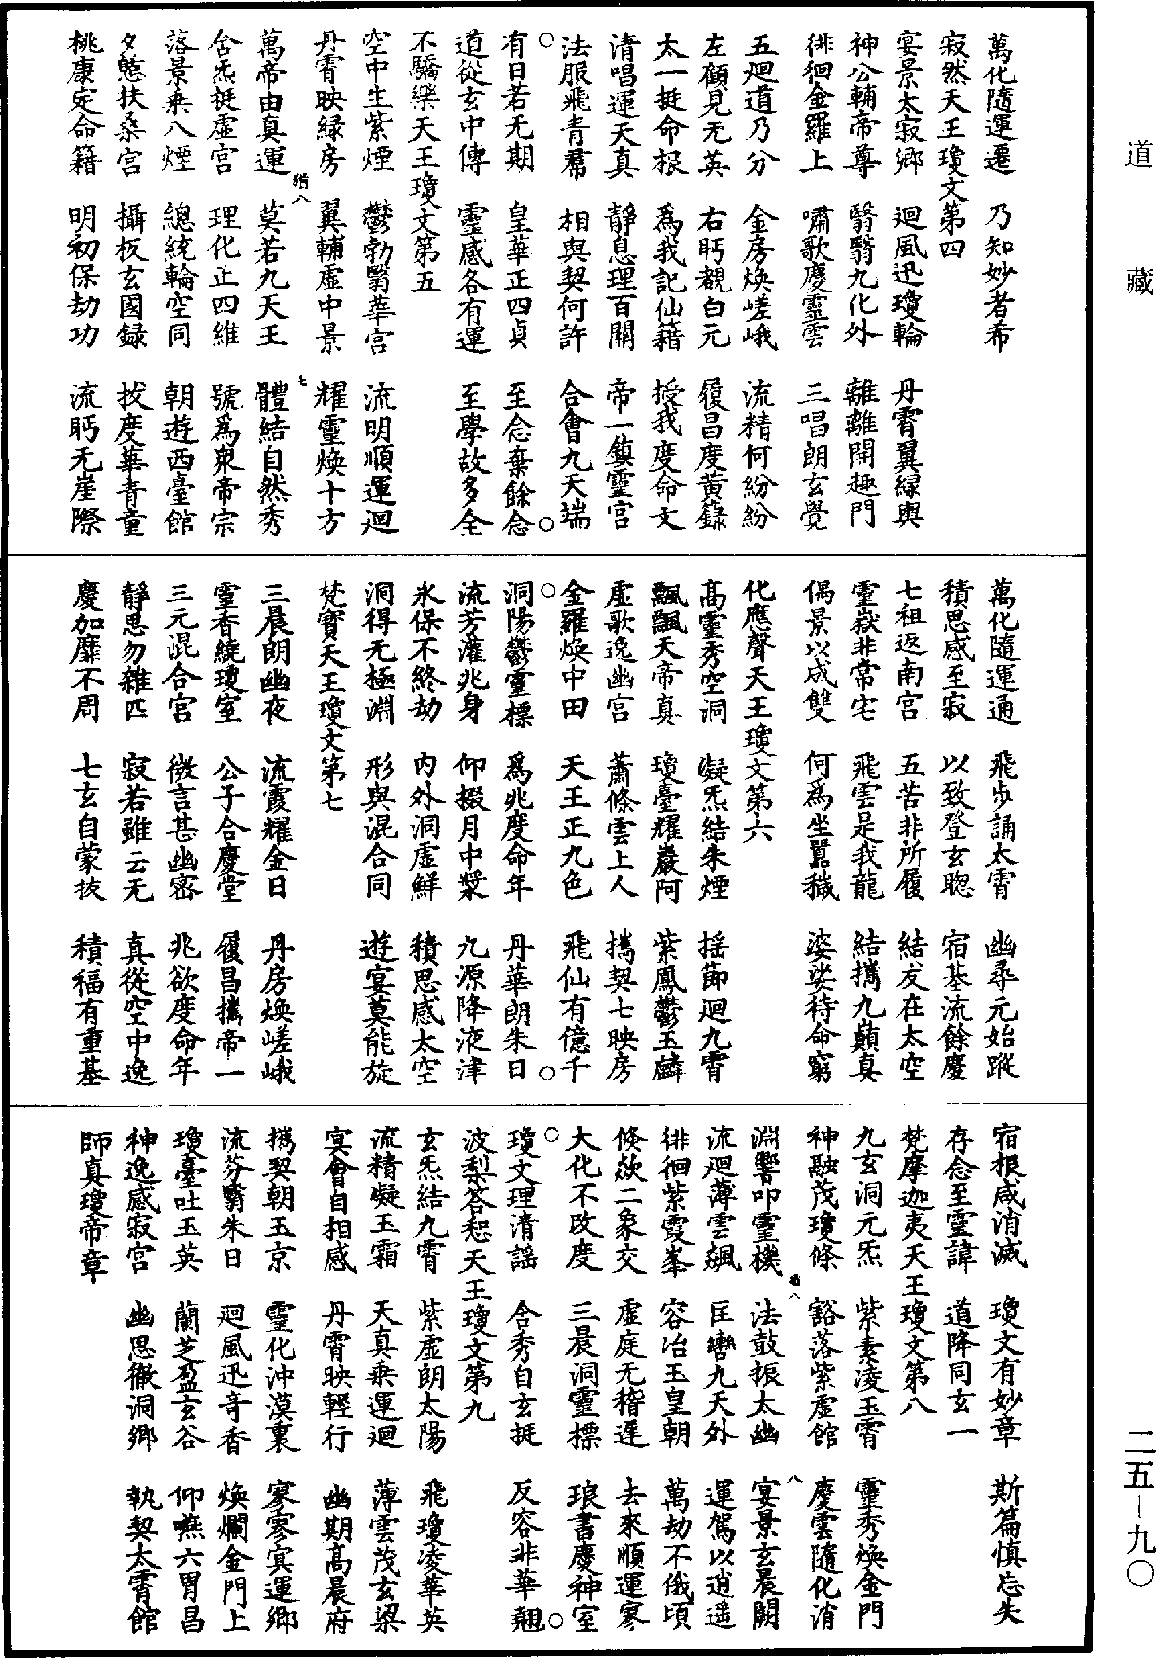 道藏
萬化隨運遷 乃知妙者希
寂然天王瓊文第四
宴景太寂鄉 迴風迅瓊輪 丹霄翼綠輿
神公輔帝尊 翳翳九化外 離離開趣門
徘徊金羅上 嘯歌慶靈雲 三唱朗玄覺
五迴道乃分 金房煥嵯峨 流精何紛紛
左顧見无英 右眄覩白元 履昌度黃籙
太一挺命根 為我記仙籍 授我度命文
清唱運天真 靜息理百關 帝一鎮靈宮
法服飛青帬 相與契何許 合會九天端
有日若无期 皇華正四貞 至念棄餘念
道從玄中傳 靈感各有運 至學故多全
不驕樂天王瓊文第五
空中生紫煙 鬱勃翳華宮 流明順運迴
丹霄映綠房 翼輔虛中景 耀靈煥十方
猶八 七
萬帝由真運 莫若九天王 體結自然秀
含炁挺虛宮 理化正四維 號為衆帝宗
落景乘八煙 總統輪空同 朝遊西臺館
夕憩扶桑宮 攝板玄圖録 拔度華青童
桃康定命籍 明初保劫功 流眄无崖際
萬化隨運通 飛步誦太霄 幽尋元始蹤
積思感至寂 以致登玄聰 宿基流餘慶
七祖返南宮 五苦非所履 結友在太空
靈嶽非常宅 飛雲是我龍 結攜九巔真
偶景以成雙 何為坐囂穢 婆娑待命窮
化應聲天王瓊文第六
高靈秀空洞 凝炁結朱煙 揺節迴九霄
飄飄天帝真 瓊臺耀巖阿 紫鳳鬱玉麟
虛歌逸幽宮 蕭條雲上人 攜契七映房
金羅煥中田 天王正九色 飛仙有億千
洞陽鬱靈標 為兆度命年 丹華朗朱日
流芳灌兆身 仰掇月中漿 九源降液津
永保不終劫 內外洞虛鮮 積思感太空
洞得无極淵 形與混合同 遊宴莫能旋
梵寶天王瓊文第七
三晨朗幽夜 流霞耀金日 丹房煥嵯峨
靈香繞瓊室 公子合慶堂 履昌攜帝一
三元混合宮 微言甚幽密 兆欲度命年
靜思勿雜匹 寂若雖云无 真從空中逸
慶加靡不周 七玄自蒙拔 積福有重基
宿根咸消滅 瓊文有妙章 斯篇慎忘失
存念至靈諱 道降同玄一
梵摩迦夷天王瓊文第八
九玄洞元炁 紫素凌玉霄 靈秀煥金門
神融茂瓊條 豁落紫虛館 慶雲隨化消
猶八 八
淵響叩靈機 法鼓振太幽 宴景玄晨闕
流迴薄雲飊 匡轡九天外 運駕以逍遥
徘徊紫霞峯 容冶玉皇朝 萬劫不俄頃
倏歘二象交 虛庭无稽遲 去來順運寥
大化不改度 三晨洞靈標 琅書慶神室
瓊文理清謡 含秀自玄挺 反容非華翹
波梨荅惒天王瓊文第九
玄炁結九霄 紫虛朗太陽 飛瓊凌華英
流精凝玉霜 天真乘運迴 薄雲茂玄梁
冥會自相感 丹霄映輕行 幽期高晨府
攜契朝玉京 靈化沖漠裏 寥寥冥運鄉
流芬翳朱日 迴風迅奇香 煥爛金門上
瓊臺吐玉英 蘭芝盈玄谷 仰嚥六胃昌
神逸感寂宮 幽思徹洞鄉 執契太霄館
師真瓊帝章
二五－九〇